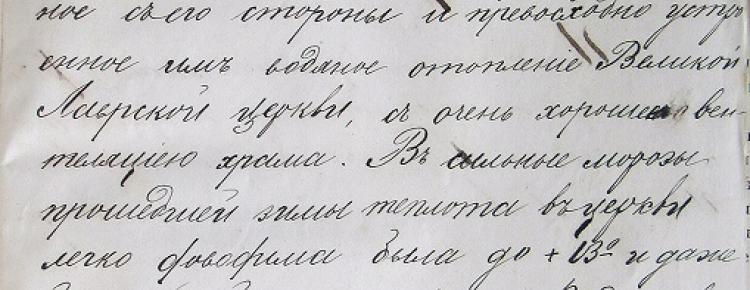 ное съ его стороны и превосходно устро
енное имъ водяное отопленіе Великой
Лаврской церкви, съ очень хорошею вен-
тиляціею храма. Въ сильные морозы
прошедшей зимы теплота въ церкви
легко доводима была до + 13° и даже